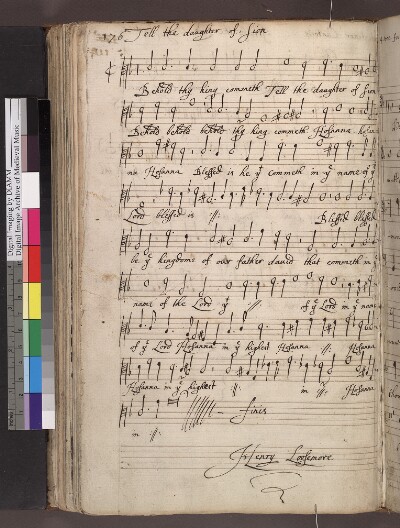 176 Tell the daughter of Sion
Behold thy king commeth Tell the daughter of Sion
Behold behold behold thy king commeth Hosanna hosan
na Hosanna Blessed is he yt commeth in ye name of ye
Lord blessed is :||: Blessed blessed
be ye kingdome of our father david that commeth in ye
name of the Lord of ye Lord in ye name
of ye Lord Hosanna in ye highest Hosanna :||: Hosanna
Hosanna in ye highest :||: in :||: Hosanna
in :||: finis
Henry Loosemore
Digital Imaging by DIAMM
Digital Image Archive of Medieval Music